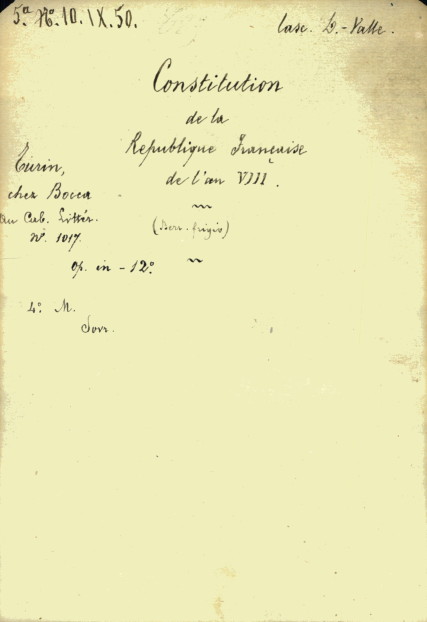 5ª Nº. 10. IX. 50.
Casc. D.-Valle.
Constitution
de la
Republique Française
de l'an VIII.
Turin,
chez Bocca
au Cab. Littér.
Nº. 1017.
op. in - 12º.
4º. M.